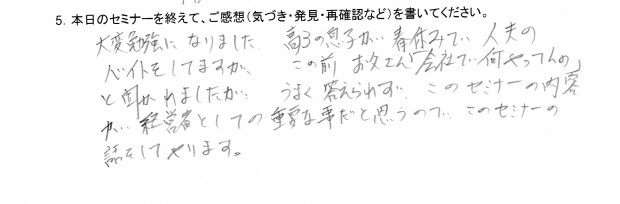 5. 本日のセミナーを終えて、ご感想（気づき・発見・再確認など）を書いてください。
大変勉強になりました。高3の息子が春休みで人夫の
バイトをしてますが、この前お父さん会社で何やってんの」
と聞かれましたが、うまく答えられず、このセミナーの内容
が、経営者としての重要な事だと思うので、このセミナーの
話をしてやります。